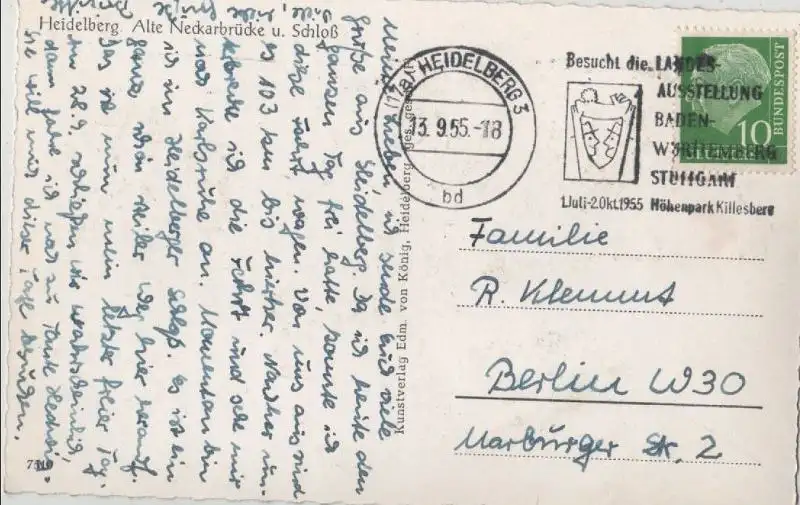 Heidelberg. Alte Neckarbrücke u. Schloß
Meine Lieben ich sende euch viele
Grüße aus Heidelberg Da ich heute den
ganzen Tag frei hatte, konnte ich
diese Fahrt wagen. Von uns aus sind
es 103 km bis hierher. Nachher un-
ich die Fahrt und sehe mir
noch Karlsruhe an. Momentan bin
ich im Heidelberger Schloß. Es ist ein
ganz schön steiler Weg hier herauf.
Das ist nun mein letzter freier Tag.
Am 28.9. schließen wir wahrscheinlich,
dann fahre ich noch zu Tante
Sie will mich dieser Tage besuchen.
7519
Kunstverlag Edm. von König, Heidelberg, ges. gesch.
(17a) HEIDELBERG 3
13.9.55.-18
bd
Besucht die LANDES-
AUSSTELLUNG
BADEN-
WÜRTTEMBERG
STUTTGART
1.Juli-2.Okt.1955 Höhenpark Killesberg
10
BUNDESPOST
Familie
R. Klemmt
Berlin W30
Marburger Str. 2